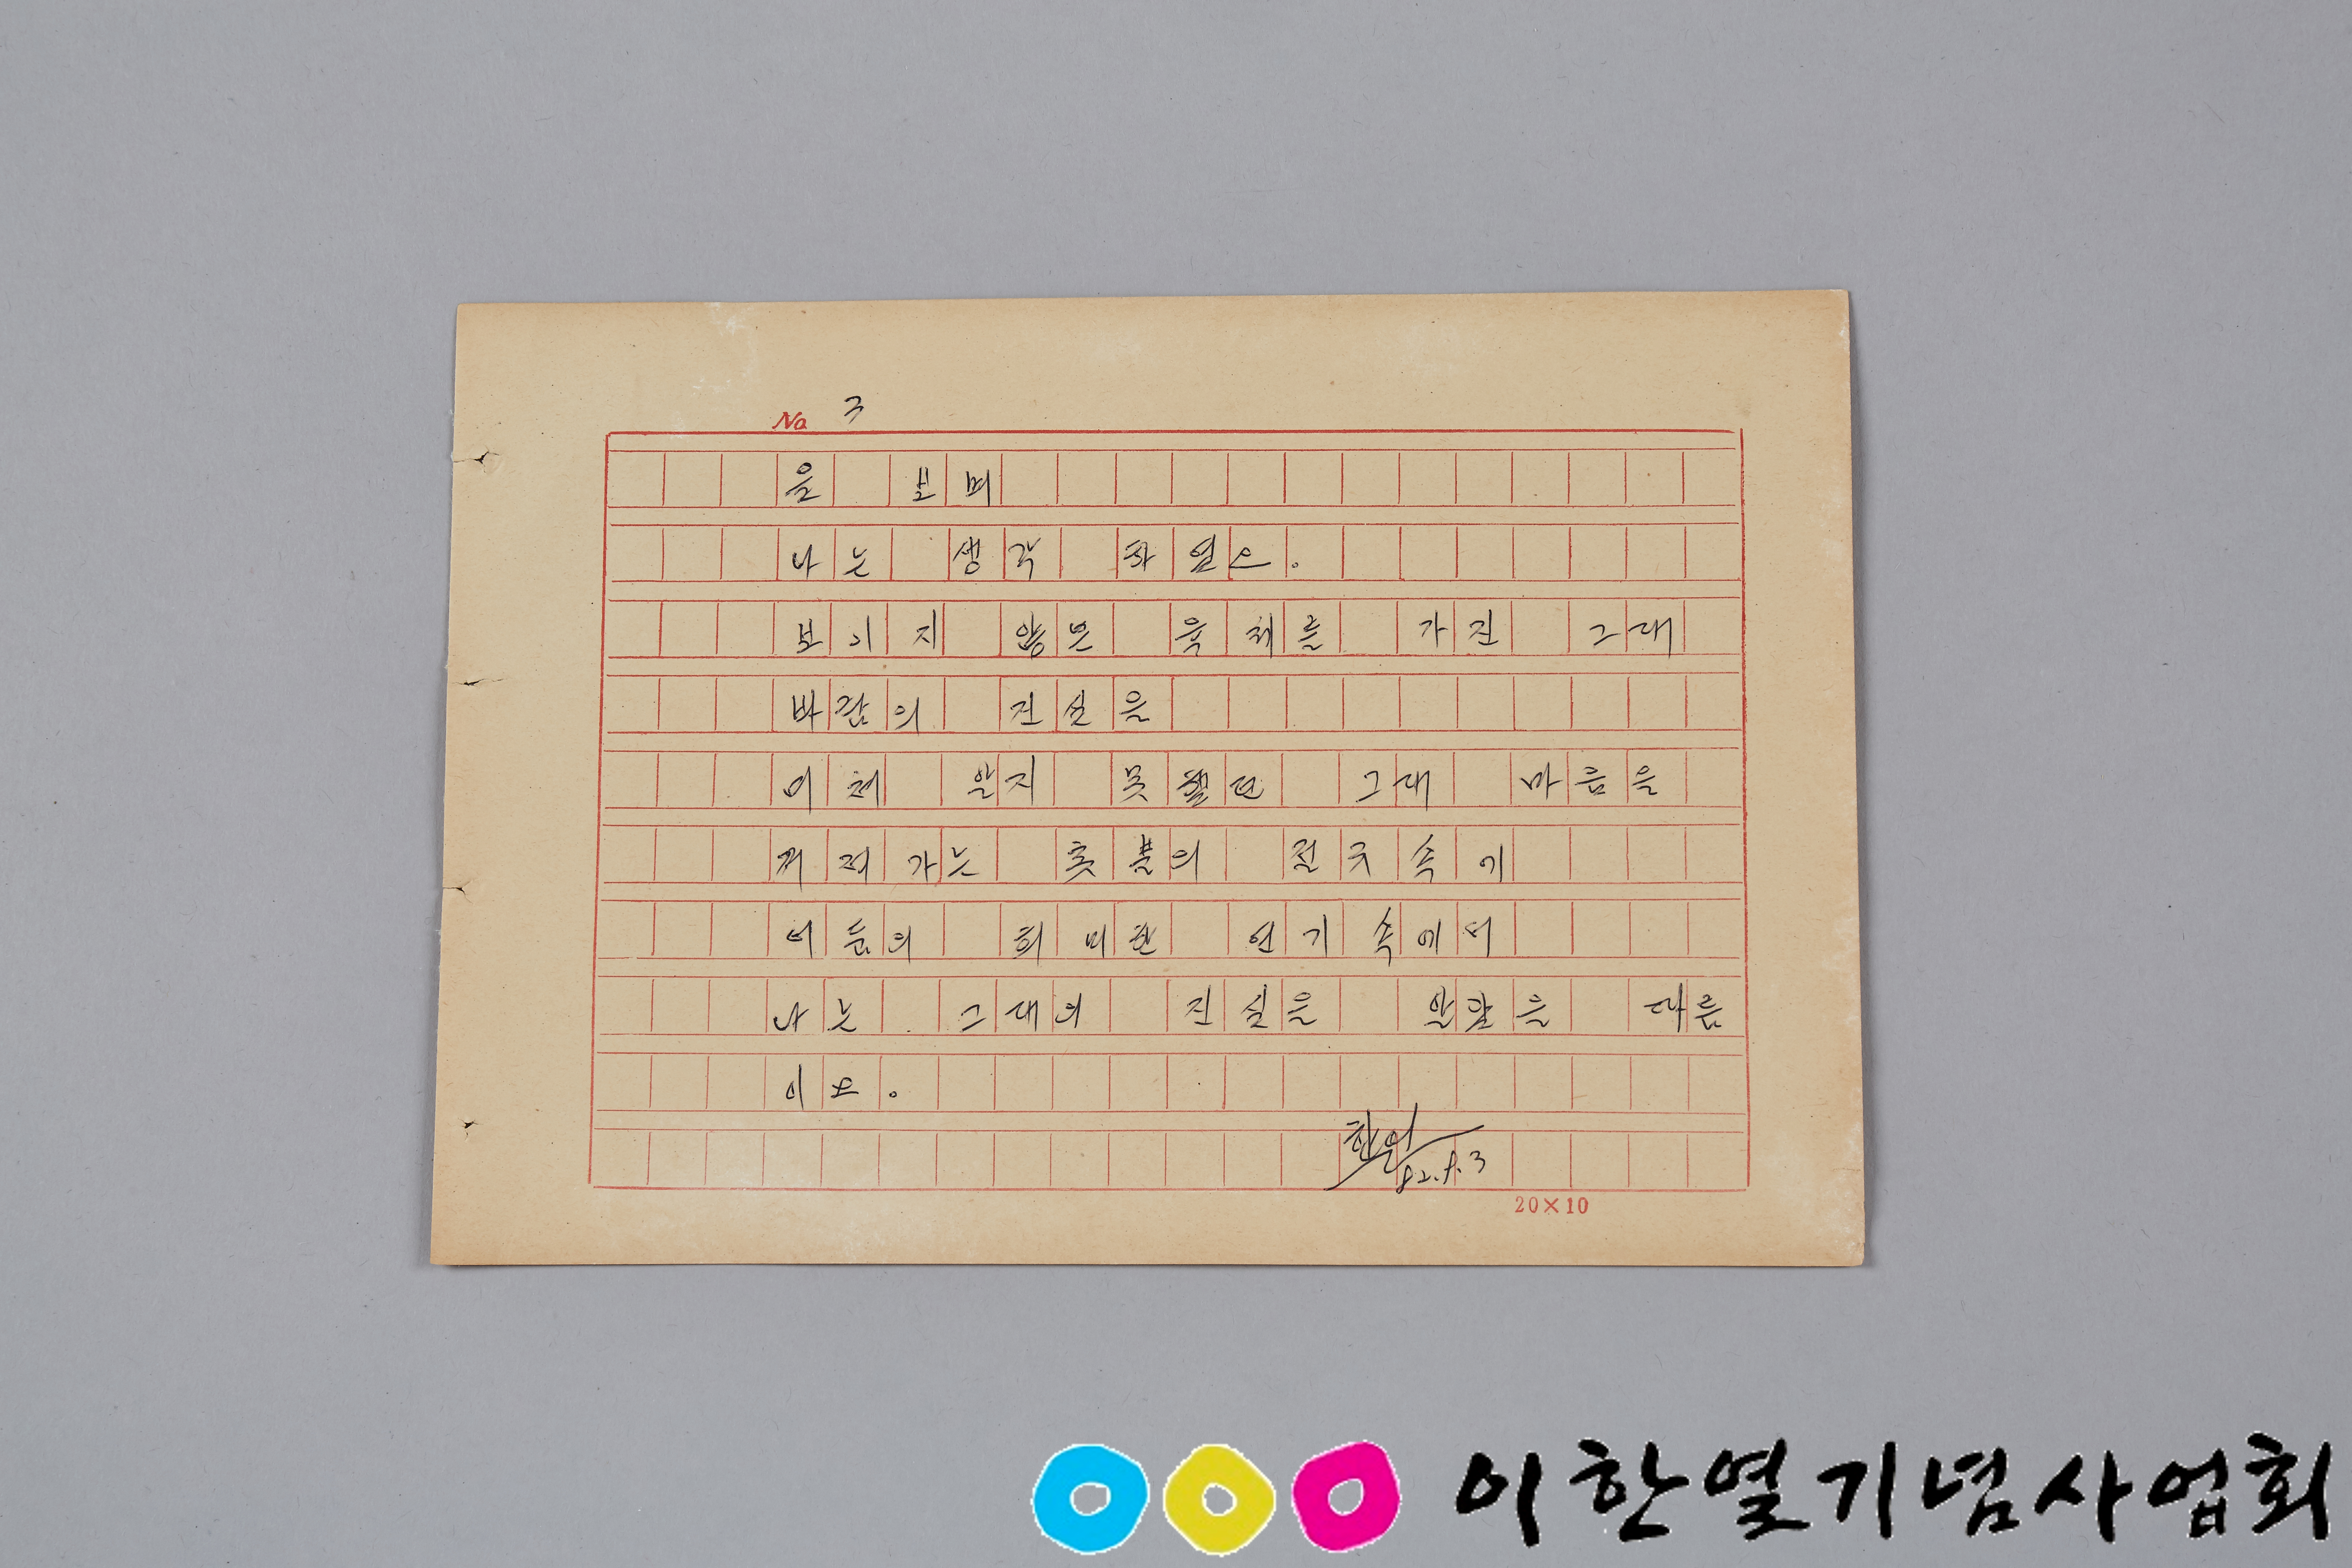 No 3
을 보며
나는 생각 하였으.
보기지 않은 육체를 가진 그대
바람의 진실을
이제 알지 못했던 그대 마음을
꺼져가는 촛불의 전구속에
어둠의 희미한 연기속에서
나는 그대의 진실을 알았을 따름
이오.
한열
82.8.3
20×10
이한열기념사업회